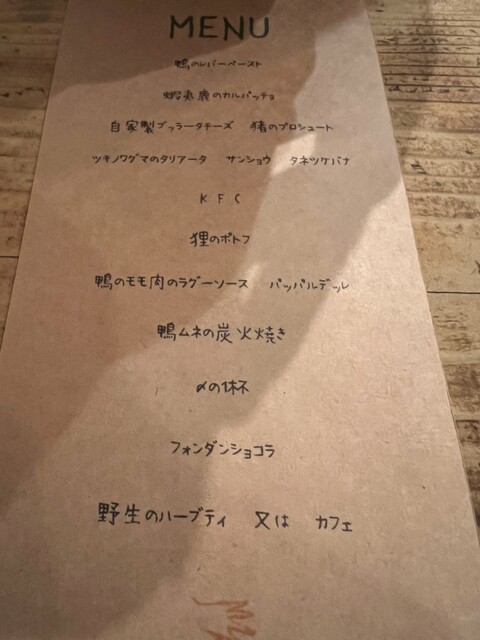 MENU
鴨のレバーペースト
蝦夷鹿のカルパッチョ
自家製ブッラータチーズ 猪のプロシュート
ツキノワグマのタリアータ サンショウ タネツケバナ
KFC
狸のポトフ
鴨のモモ肉のラグーソース パッパルデッレ
鴨ムネの炭火焼き
〆の1杯
フォンダンショコラ
野生のハーブティ 又は カフェ